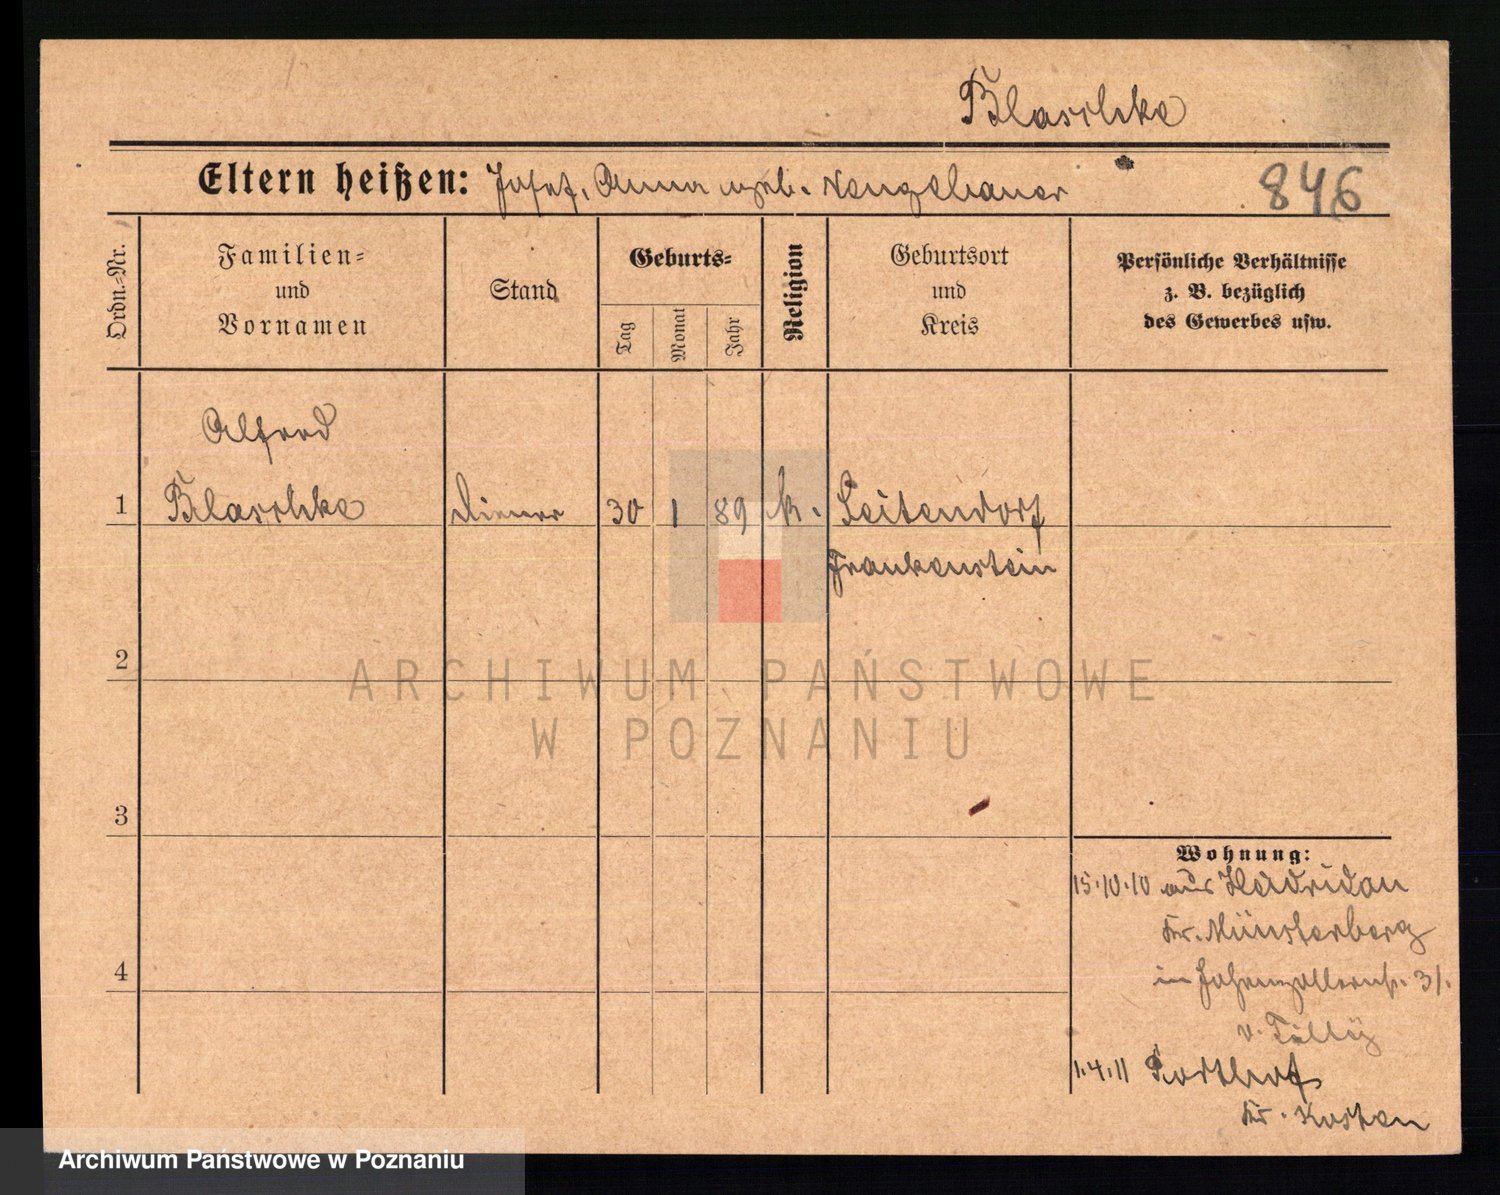 Blaschke
Eltern heißen: Josef, Anna geb. Neugebauer
846
Ordn.=Nr.
Familien=
und
Vornamen
Stand
Geburts=
Tag
Monat
Jahr
Religion
Geburtsort
und
Kreis
Persönliche Verhältnisse
z. B. bezüglich
des Gewerbes usw.
Alfred
1 Blaschke Diener 30 1 89 k. Seitendorf
Frankenstein
2
ARCHIWUM PAŃSTWOWE
W POZNANIU
3
Wohnung:
15.10.10 aus
Kr. Münsterberg
4
in Hohenzollernstr. 31.
v. Tilly
1.4.11
Kr. Kosten
Archiwum Państwowe w Poznaniu